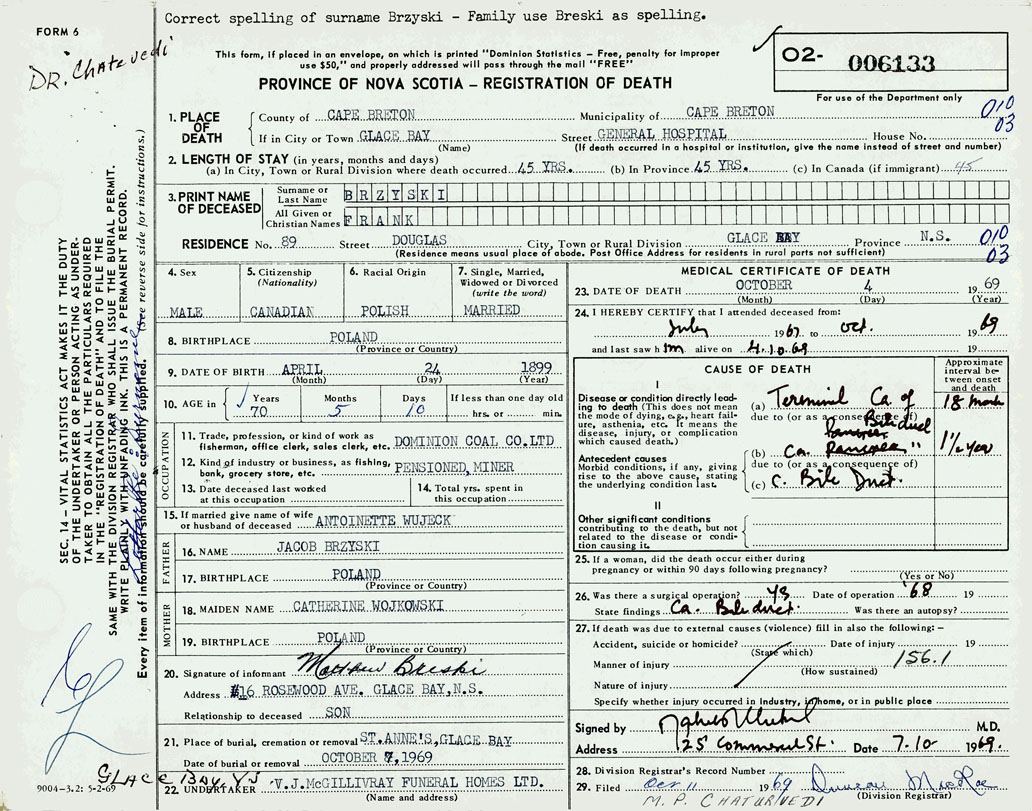 Correct spelling of surname Brzyski - Family use Breski as spelling.
FORM 6
DR. Chatuvedi
This form, if placed in an envelope, on which is printed "Dominion Statistics - Free, penalty for improper
use $50," and properly addressed will pass through the mail "FREE"
PROVINCE OF NOVA SCOTIA - REGISTRATION OF DEATH
02- 006133
For use of the Department only
1. PLACE OF DEATH County of CAPE BRETON Municipality of CAPE BRETON 010
If in City or Town GLACE BAY Street GENERAL HOSPITAL House No. 03
(Name) (If death occurred in a hospital or institution, give the name instead of street and number)
2. LENGTH OF STAY (in years, months and days)
(a) In City, Town or Rural Division where death occurred 45 YRS. (b) In Province 45 YRS. (c) In Canada (if immigrant) 45
3. PRINT NAME OF DECEASED Surname or Last Name BRZYSKI
All Given or Christian Names FRANK
RESIDENCE No. 89 Street DOUGLAS City, Town or Rural Division GLACE BAY Province N.S. 010
(Residence means usual place of abode. Post Office Address for residents in rural parts not sufficient) 03
4. Sex MALE
5. Citizenship (Nationality) CANADIAN
6. Racial Origin POLISH
7. Single, Married, Widowed or Divorced (write the word) MARRIED
8. BIRTHPLACE POLAND
(Province or Country)
9. DATE OF BIRTH APRIL 24 1899
(Month) (Day) (Year)
10. AGE in Years 70 Months 5 Days 10 If less than one day old hrs. or min.
OCCUPATION
11. Trade, profession, or kind of work as
fisherman, office clerk, sales clerk, etc. DOMINION COAL CO.LTD
12. Kind of industry or business, as fishing,
bank, grocery store, etc. PENSIONED, MINER
13. Date deceased last worked
at this occupation
14. Total yrs. spent in
this occupation
15. If married give name of wife
or husband of deceased ANTOINETTE WUJECK
FATHER
16. NAME JACOB BRZYSKI
17. BIRTHPLACE POLAND
(Province or Country)
MOTHER
18. MAIDEN NAME CATHERINE WOJKOWSKI
19. BIRTHPLACE POLAND
(Province or Country)
20. Signature of informant Matthew Breski
Address #16 ROSEWOOD AVE. GLACE BAY, N.S.
Relationship to deceased SON
21. Place of burial, cremation or removal ST.ANNE'S, GLACE BAY
Date of burial or removal OCTOBER 7, 1969
22. UNDERTAKER V.J.McGILLIVRAY FUNERAL HOMES LTD.
(Name and address)
MEDICAL CERTIFICATE OF DEATH
23. DATE OF DEATH OCTOBER 4 1969
(Month) (Day) (Year)
24. I HEREBY CERTIFY that I attended deceased from:
July 1967 to Oct. 1969
and last saw him alive on 4.10.69 19
CAUSE OF DEATH
Approximate interval between onset and death
I
Disease or condition directly leading to death (This does not mean the mode of dying, e.g., heart failure, asthenia, etc. It means the disease, injury, or complication which caused death.)
(a) Terminal Ca. of
due to (or as a consequence of)
Bile duct
Antecedent causes
Morbid conditions, if any, giving rise to the above cause, stating the underlying condition last.
(b) Ca. Pancreas "
due to (or as a consequence of)
(c) C. Bile Duct.
II
Other significant conditions
contributing to the death, but not related to the disease or condition causing it.
25. If a woman, did the death occur either during
pregnancy or within 90 days following pregnancy?
(Yes or No)
26. Was there a surgical operation? ys Date of operation '68 19
State findings Ca. Bile duct. Was there an autopsy?
27. If death was due to external causes (violence) fill in also the following:-
Accident, suicide or homicide? Date of injury 19
(State which)
Manner of injury 156.1
(How sustained)
Nature of injury
Specify whether injury occurred in Industry, in home, or in public place
Signed by M.D.
Address 25 Commercial St. Date 7.10 1969.
28. Division Registrar's Record Number
29. Filed Oct 11 1969
(Division Registrar)
M.P. CHATURVEDI
GLACE BAY, NS
9004-3.2: 5-2-69
SEC. 14 - VITAL STATISTICS ACT MAKES IT THE DUTY
OF THE UNDERTAKER OR PERSON ACTING AS UNDER-
TAKER TO OBTAIN ALL THE PARTICULARS REQUIRED
IN THE "REGISTRATION OF DEATH" AND TO FILE THE
SAME WITH THE DIVISION REGISTRAR WHO SHALL ISSUE THE BURIAL PERMIT.
WRITE PLAINLY WITH UNFADING INK. THIS IS A PERMANENT RECORD.
Every item of information should be carefully supplied. (See reverse side for instructions.)